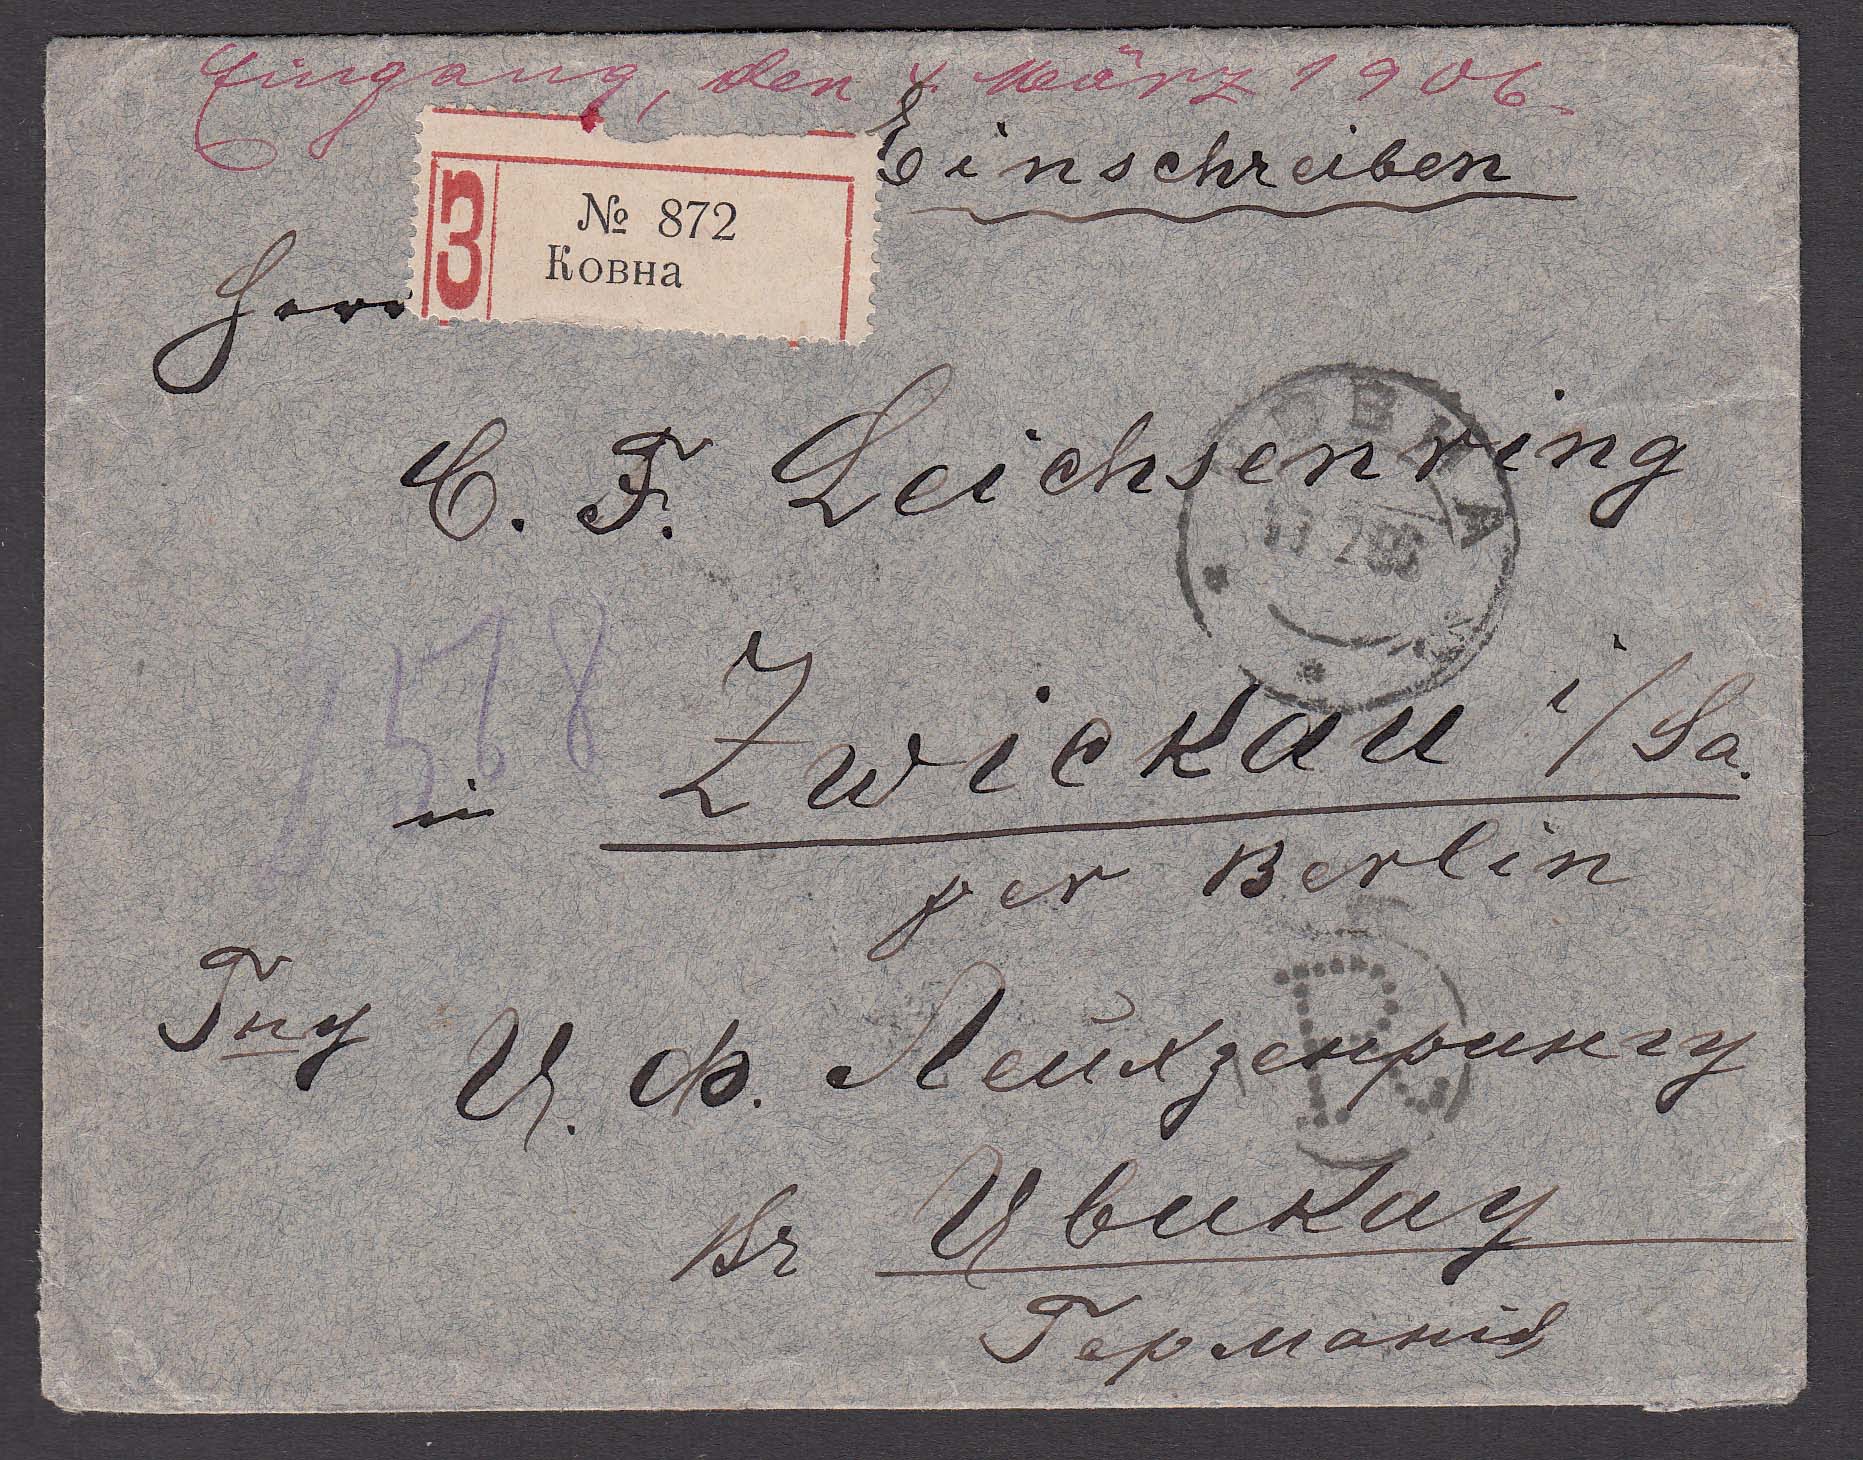 Eingang, den 4. März 1906.
Einschreiben
З
№ 872
Ковна
Herrn
C. F. Leichsenring
КОВНА
1578
in Zwickau i/Sa.
per Berlin
R
Гну Ц. Ф. Лейхзенрингу
Вг Цвикау
Германія